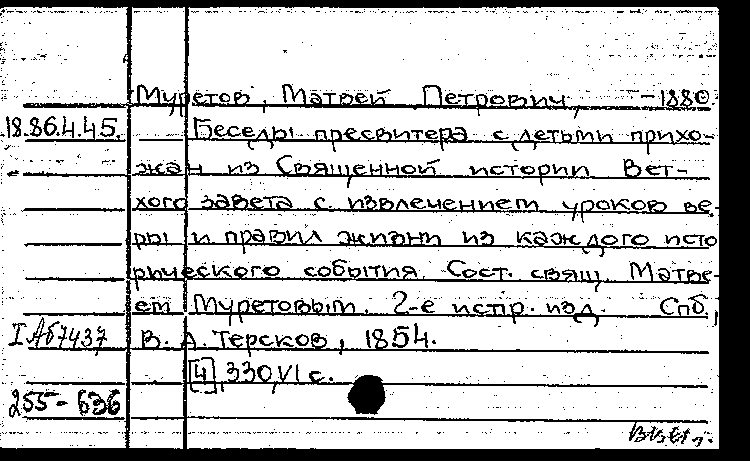 Муретов, Матвей Петрович, -1880.
18.86.4.45. Беседы пресвитера с детьми прихо-
жан из Священной истории Вет-
хого завета с извлечением уроков ве-
ры и правил жизни из каждого исто
рического события. Сост. свящ. Матве-
ем Муретовым. 2-е испр. изд. Спб.,
I Аб7437 В. А. Терсков, 1854.
[4], 330, VI с.
255-636